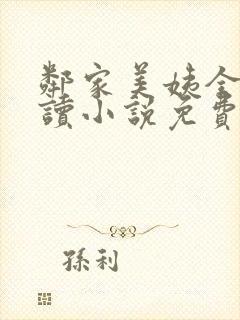 鄰家美姨全
讀小說免費
孫利